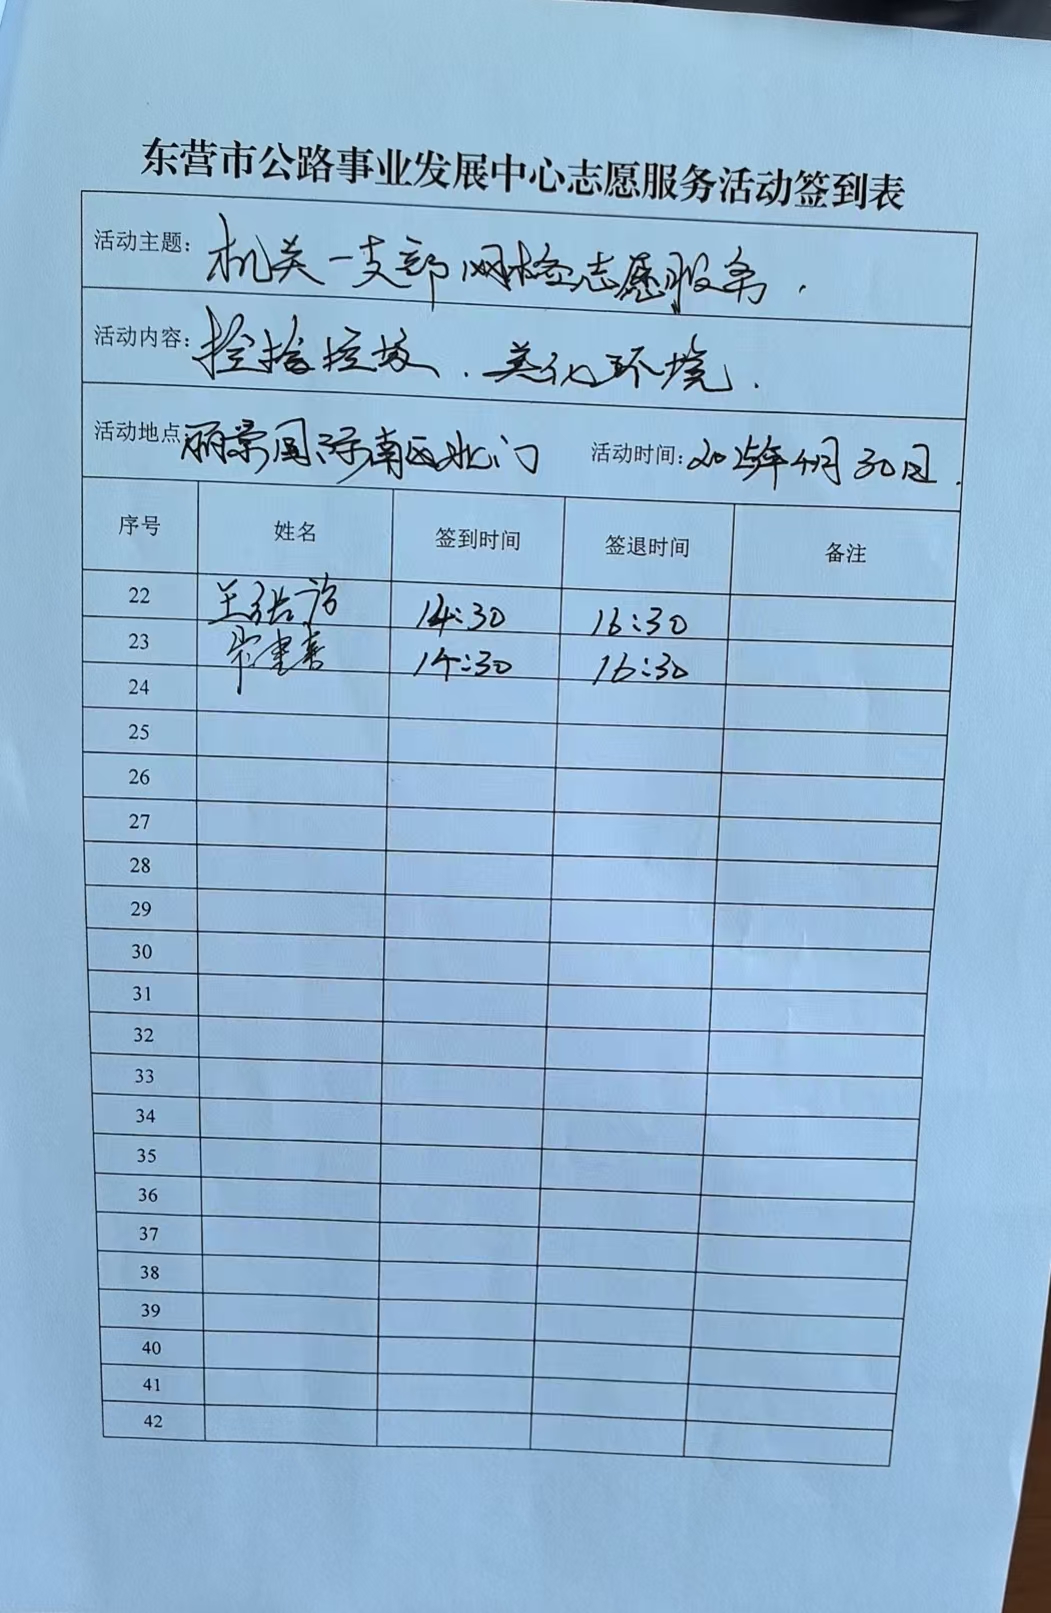 东营市公路事业发展中心志愿服务活动签到表
活动主题: 机关一支部网格志愿服务.
活动内容: 捡拾垃圾.美化环境.
活动地点 丽景国际南区北门 活动时间: 2025年4月30日.
序号 姓名 签到时间 签退时间 备注
22 王 14:30 16:30
23 14:30 16:30
24
25
26
27
28
29
30
31
32
33
34
35
36
37
38
39
40
41
42